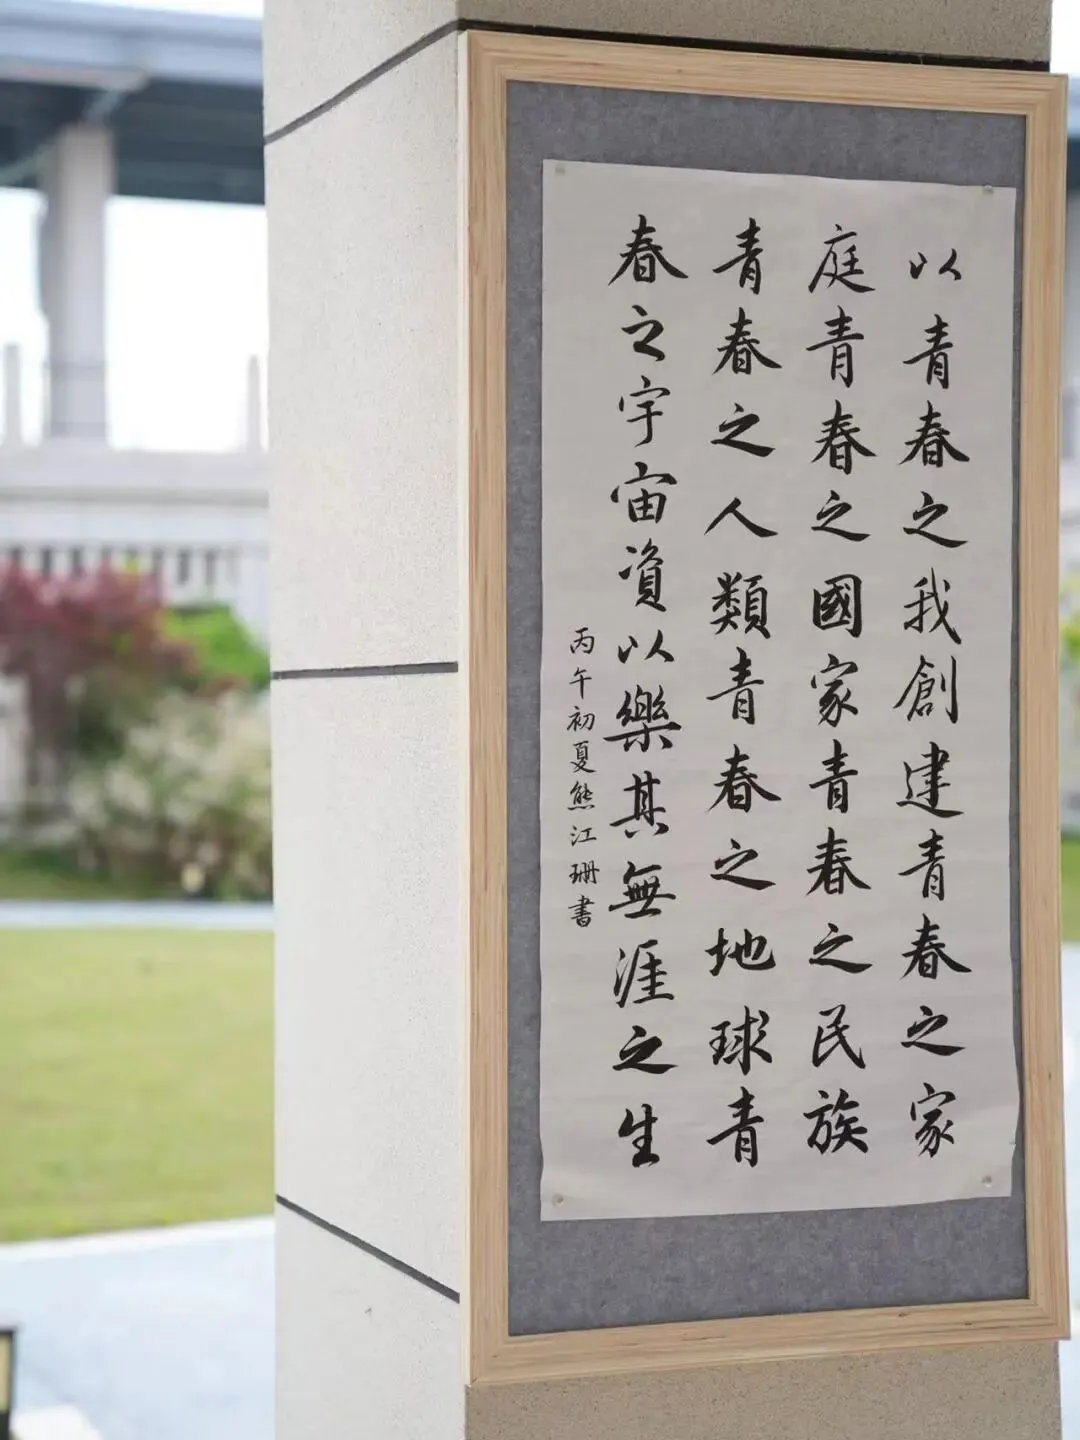 以青春之我創建青春之家
庭青春之國家青春之民族
青春之人類青春之地球青
春之宇宙資以樂其無涯之生
丙午初夏熊江珊書